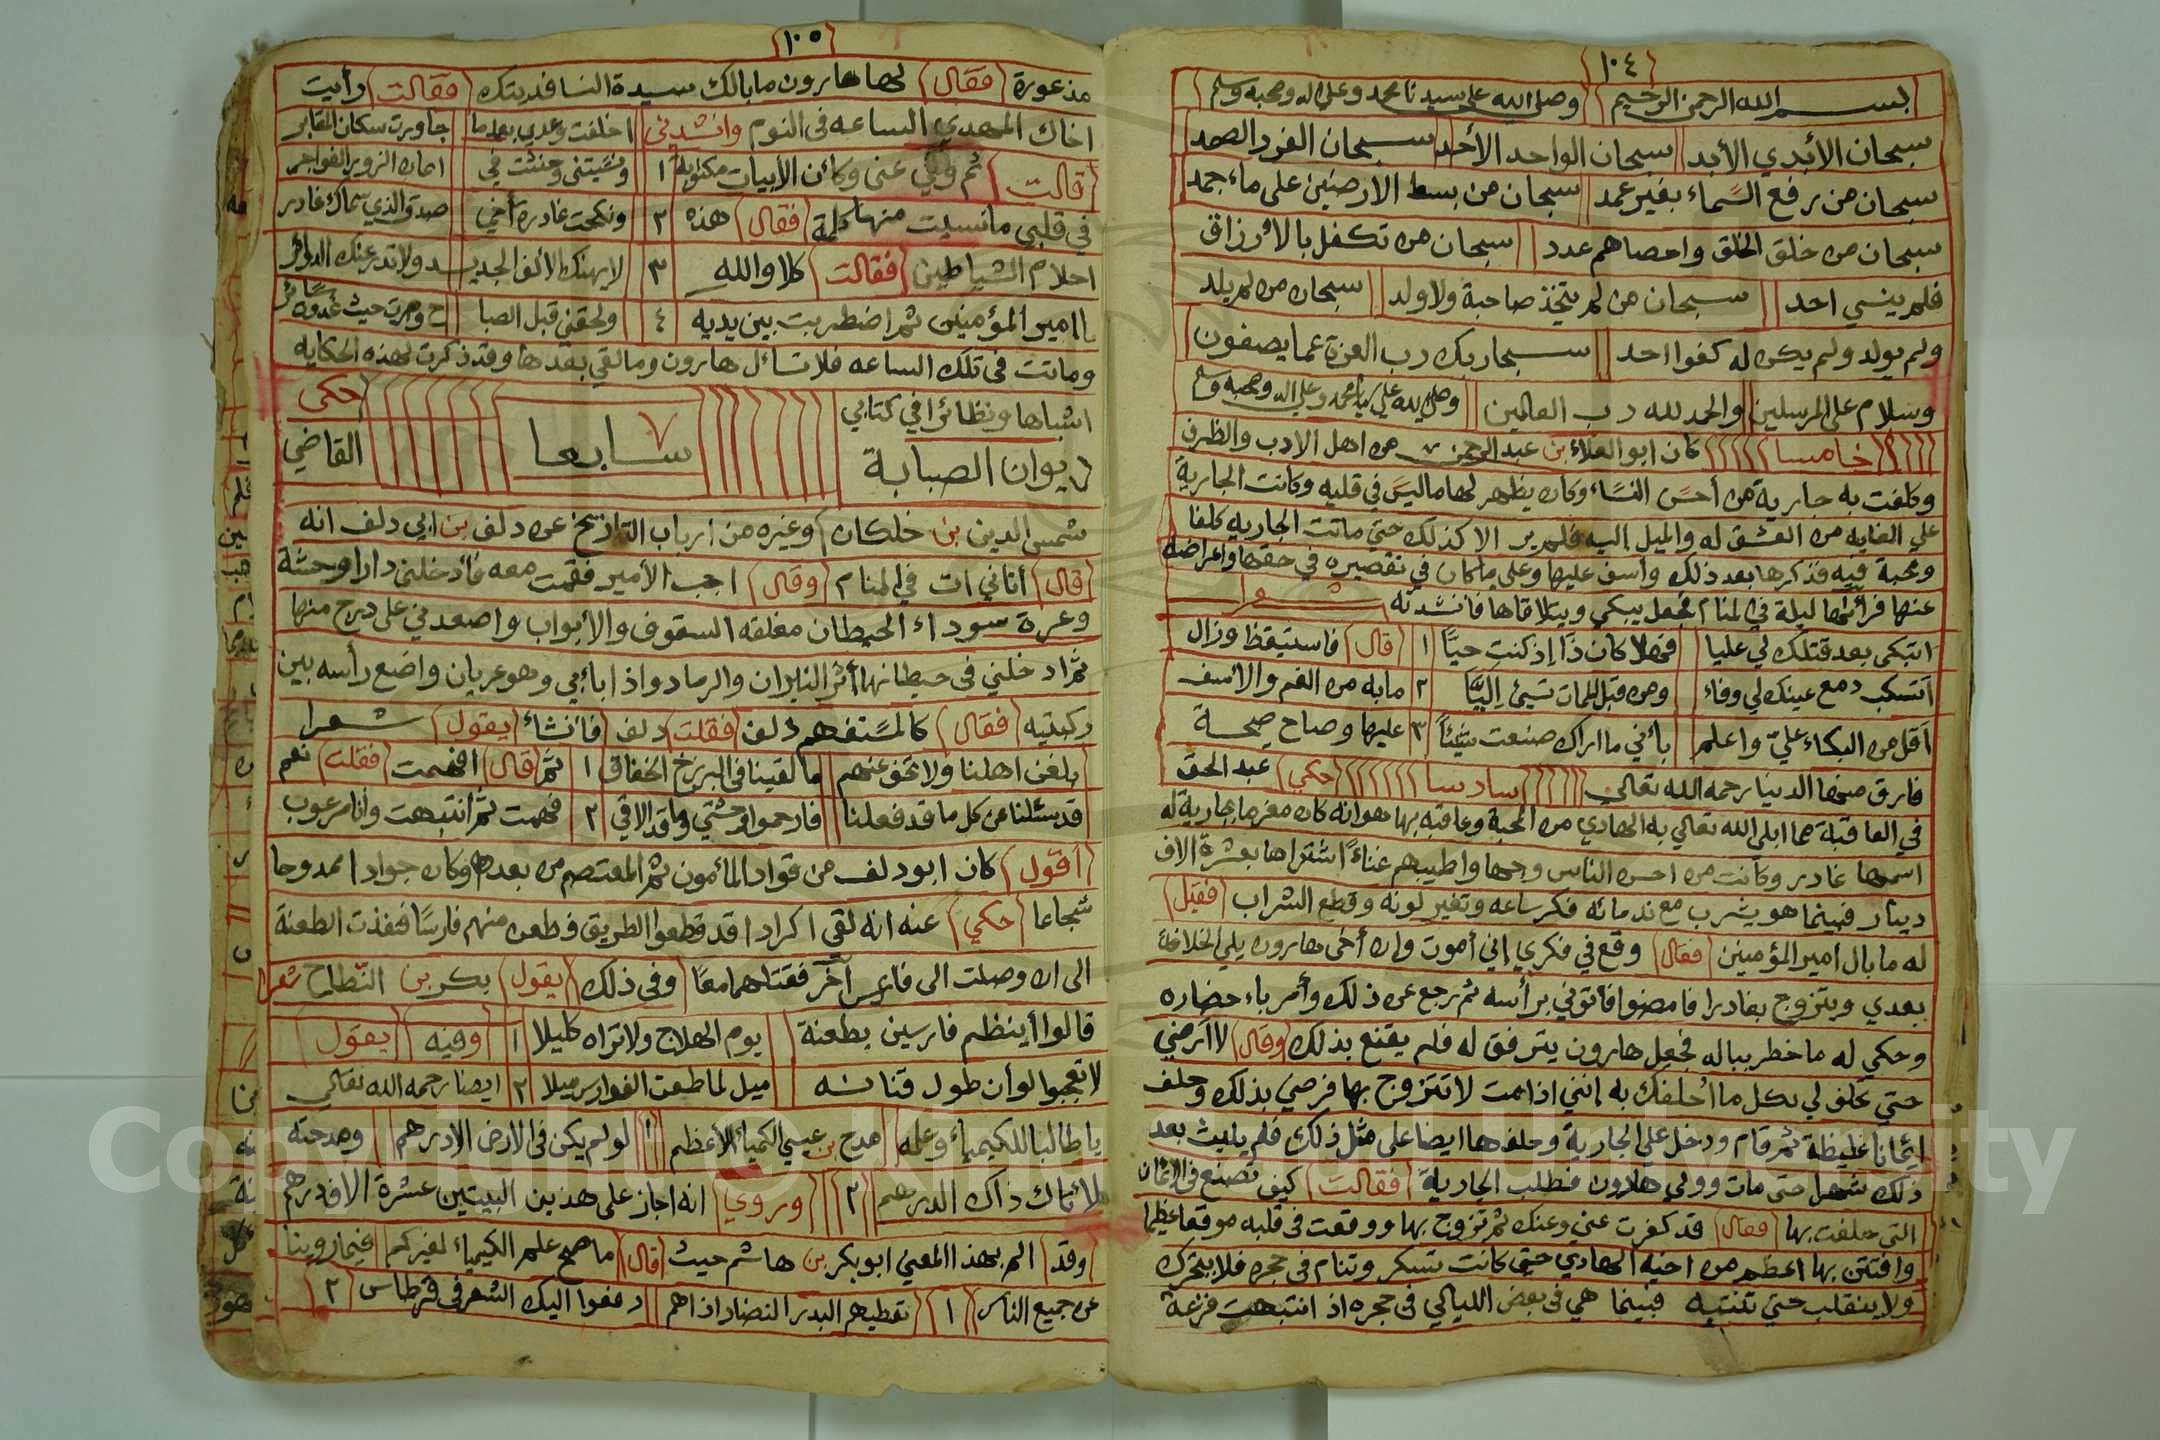 ١٠٤
بسم الله الرحمن الرحيم وصلى الله على سيدنا محمد وعلى اله وصحبه وسلم
سبحان الأبدي الأبد سبحان الواحد الأحد سبحان الفرد الصمد
سبحان من رفع السماء بغير عمد سبحان من بسط الارضين على ماء جمد
سبحان من خلق الخلق واحصاهم عدد سبحان من تكفل بالأرزاق
فلم ينسي احد سبحان من لم يتخذ صاحبة ولا ولد سبحان من لم يلد
ولم يولد ولم يكن له كفوا احد سبحان ربك رب العزة عما يصفون
وسلام على المرسلين والحمد لله رب العالمين وصلى الله على سيدنا محمد وعلى اله وصحبه وسلم
خامسا كان ابو العلاء بن عبد الرحمن من اهل الادب والظرف
وكلفت به جارية من أحسن النساء وكان يظهر لها ما ليس في قلبه وكانت الجارية
علي الغايه من العشق له والميل اليه فلم ير الا كذلك حتي ماتت الجاريه كلفا
ومحبة فيه فذكرها بعد ذلك وأسف عليها وعلى ما كان في تقصيره في حقها واعراضه
عنها فرأها ليلة في المنام فجعل يبكي ويتلاقاها فانشدته شعرا
اتبكى بعد قتلك لي عليا فهلا كان ذا اذ كنت حيا ١ قال فاستيقظ وزال
أتسكب دمع عينك لي وفاء ومن قبل الممات تسيئ اليا ٢ مابه من الغم والأسف
أقل من البكاء علي واعلم بأني ما اراك صنعت شيئا ٣ عليها وصاح صيحة
فارق منها الدنيا رحمه الله تعالى سادسا حكي عبد الحق
في العاقبة مما ابلى الله تعالي به الهادي من المحبة وعاقبه بها هو انه كان مغرما بجارية له
اسمها غادر وكانت من احسن الناس وجها واطيبهم غناء اشتراها بعشرة الاف
دينار فبينما هو يشرب مع ندمائه فكر ساعه وتغير لونه وقطع الشراب فقيل
له ما بال أمير المؤمنين فقال وقع في فكري إني أموت وان أخى هارون يلي الخلافة
بعدي ويتزوج بغادر فامضوا فاتوني برأسه ثم رجع عن ذلك وأمر باء حضاره
وحكي له ما خطر بباله فجعل هارون يترفق له فلم يقنع بذلك وقال لا أرضي
حتي تحلف لي بكل ما أحلفك به إنني اذا مت لا تتزوج بها فرضي بذلك وحلف
إيمانا غليظة ثم قام ودخل على الجارية وحلفها ايضا على مثل ذلك فلم يلبث بعد
ذلك شهرا حتى مات وولي هارون فطلب الجارية فقالت كيف تصنع في الايمان
التي حلفت بها فقال قد كفرت عني وعنك ثم تزوج بها ووقعت في قلبه موقعا عظيما
وافتتن بها اعظم من اخيه الهادي حتى كانت تسكر وتنام في حجره فلا يتحرك
ولا ينقلب حتي تنتبه فبينما هي في بعض الليالي في حجره اذ انتبهت فزعة
١٠٥
مذعورة فقال لها هارون ما بالك سيدة النسا فديتك فقالت رأيت
اخاك المهدي الساعه في النوم وانشدني اخلفت وعدي بعد ما جاورت سكان المقابر
قالت ثم ولي عنى وكأن الأبيات مكتوبة ١ ونسيتنى وحنثت في ايمان الزور الفواجر
في قلبي ما نسيت منها كلمة فقال هذه ٢ ونكحت غادرة أخي صدق الذي سماك غادر
احلام الشياطين فقالت كلا والله ٣ لا يهنك الالف الجديد ولا تدر عنك الدوائر
يا امير المؤمنين ثم اضطربت بين يديه ٤ ولحقتي قبل الصباح وصرت حيث غدوت سائر
وماتت في تلك الساعه فلا تسأل هارون وما لقي بعدها وقد ذكرت لهذه الحكايه
اشباها ونظائرا في كتابي ديوان الصبابة سابعا حكى القاضي
شمس الدين بن خلكان وغيره من ارباب التاريخ عن دلف بن ابي دلف انه
قال أتاني ات في المنام وقال اجب الأمير فقمت معه فأدخلني دارا وحشة
وعرة سوداء الحيطان مغلقه السقوف والأبواب واصعدني على درج منها
ثم ادخلني في حيطانها أثر النيران والرماد واذا بأبي وهو عريان واضع رأسه بين
ركبتيه فقال كالمستفهم دلف فقلت دلف فانشاء يقول شعرا
بلغن اهلنا ولا تخف عنهم ما لقينا في البرزخ الخفاق ١ ثم قال افهمت فقلت نعم
قد سئلنا عن كل ما قد فعلنا فارحموا وحشتي وما قد الاقي ٢ فهمت ثم انتبهت وأنا مرعوب
أقول كان ابو دلف من قواد المأمون ثم المعتصم من بعده وكان جوادا ممدوحا
شجاعا حكي عنه انه لقي اكرادا قد قطعوا الطريق فطعن منهم فارسا فنفذت الطعنة
الى ان وصلت الى فارس آخر فقتلهما معا وفي ذلك يقول بكر بن النطاح شعرا
قالوا أينظم فارسين بطعنة يوم الهلاج ولا تراه كليلا ١ وفيه يقول
لا تعجبوا لو أن طول قناته ميل لما طعن الفوارس ميلا ٢ ايضا رحمه الله تعالى
يا طالبا للكيمياء وعلمه مدح بن عيسي الكمياء الأعظم ١ لو لم يكن في الارض الا درهم ومدحته
لأتاك ذاك الدرهم ٢ وروي انه اجاز على هذين البيتين عشرة الاف درهم
وقد الم بهذا المعني ابو بكر بن هاشم حيث قال ما صح علم الكيمياء لغيركم فيما روينا
عن جميع الناس ١ تعطيهم البدر النضار اذا هم دفعوا اليك الشعر في قرطاس ٢
Copyright © King Saud University